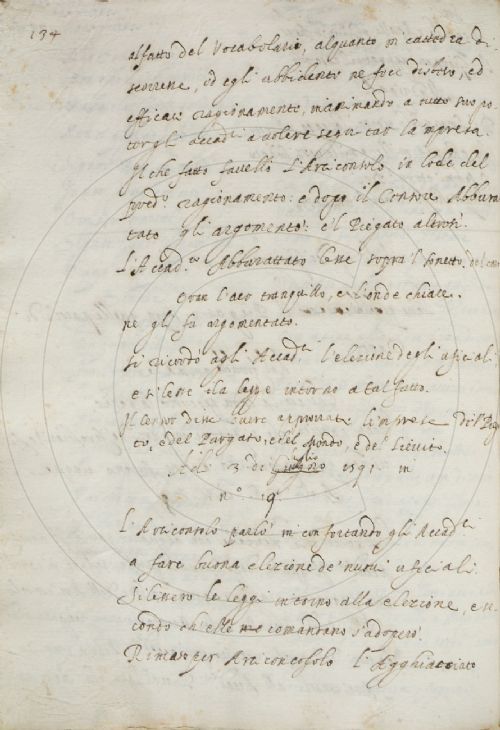 134
al fatto del Vocabolario, alquanto in cattedra di
scorrene, ed egli ubbidente ne fece disteso, ed
efficace ragionamento, inanimando a tutto suo po
ter gli accad.i a volere seguitar la mpresa.
Il che fatto favellò l'Arciconsolo in lode del
pred.o ragionamento: e dopo il Censore Abbura
tato gli argomentò: e'l Piegato altresì.
L'Accad.co Abburattato lesse sopra'l sonetto
Or an l'aer tranquillo, e l'onde chiare.
ne gli fu argomentato.
Si ricordò agli Accad.i l'elezione degli uficiali
e si lesse la legge intorno a tal fatto.
Il Censor disse avere approvate l'imprese del
to, e del Purgato, e del Mondo, e del
Adì 3 di giugno luglio 1591 in
n.o 19
L'Arciconsolo parlò in confortando gli Accad.i
a fare buona elezione de' nuovi uficiali.
Si lessero le leggi intorno alla elezione, e se
condo ch'elle ne comandano s'adoperò.
Rimase per Arciconsolo l'Agghiacciato